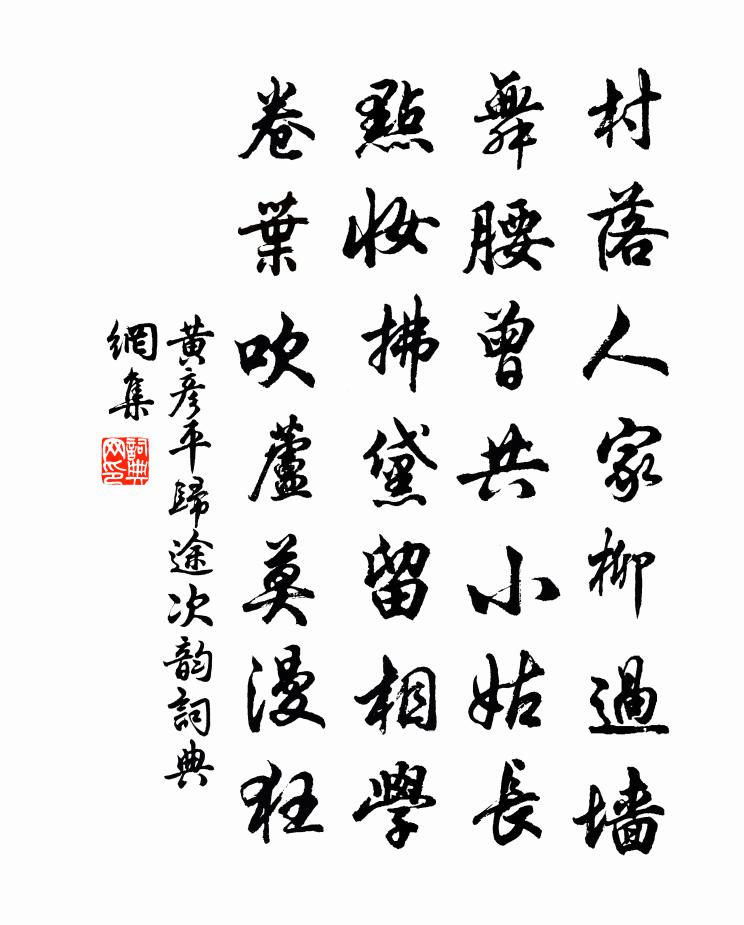 村落人家柳過墻
舞腰曾共小姑長
點妝拂黛留相學
卷葉吹蘆莫漫狂
黄彦平歸途次韵詞典
網集
詞典
网印